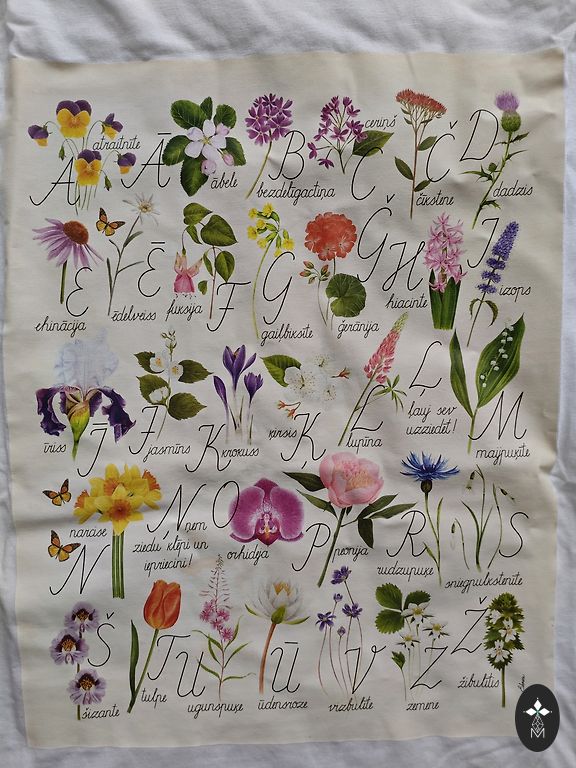 A
atraitnīte
Ā
ābele
B
bezdelīgactiņa
C
ceriņš
Č
čūkstene
D
dadzis
E
ehinācija
Ē
ēdelveiss
F
fuksija
G
gaiļbiksīte
Ģ
ģerānija
H
hiacinte
I
izops
Ī
īriss
J
jasmīns
K
krokuss
Ķ
ķirsis
L
lupīna
Ļ
ļauj sev
uzziedēt!
M
maijpuķīte
N
narcise
Ņ
ņem
ziedu klēpi un
iepriecini!
O
orhideja
P
peonija
R
rudzupuķe
S
sniegpulkstenīte
Š
šizante
T
tulpe
U
ugunspuķe
Ū
ūdensroze
V
vizbulīte
Z
zemene
Ž
žibulītis
M